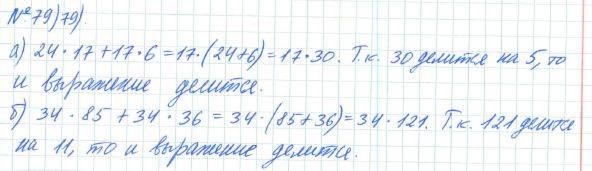 №79)79).
а) 24·17+17·6=17·(24+6)=17·30. Т.к. 30 делится на 5, то
и выражение делится.
б) 34·85+34·36=34·(85+36)=34·121. Т.к. 121 делится
на 11, то и выражение делится.